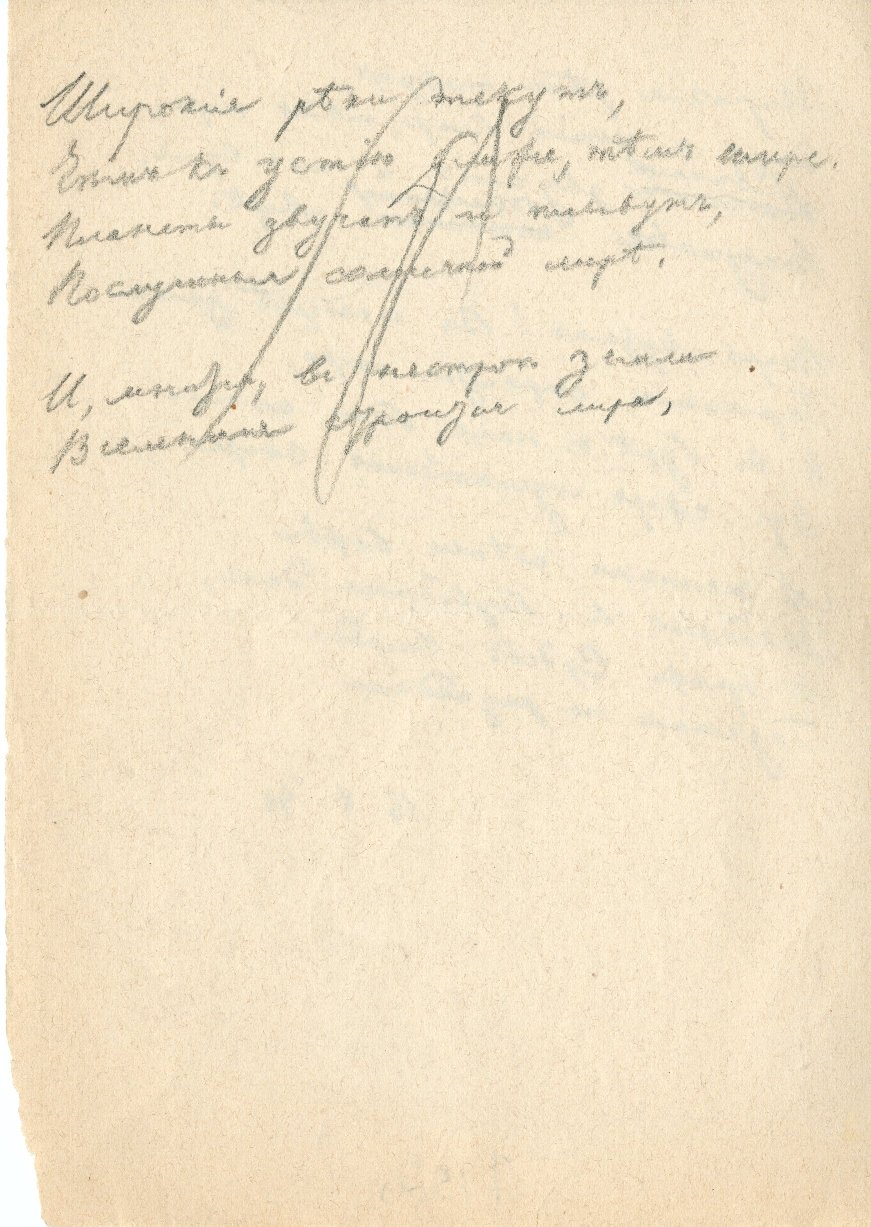 Широкія рѣки текутъ,
Чѣмъ къ устію ближе, тѣмъ шире.
Планеты звучатъ и плывутъ,
Послушныя солнечной лирѣ.

И, многи, въ пестрой земли
Вселенныя строй мира,